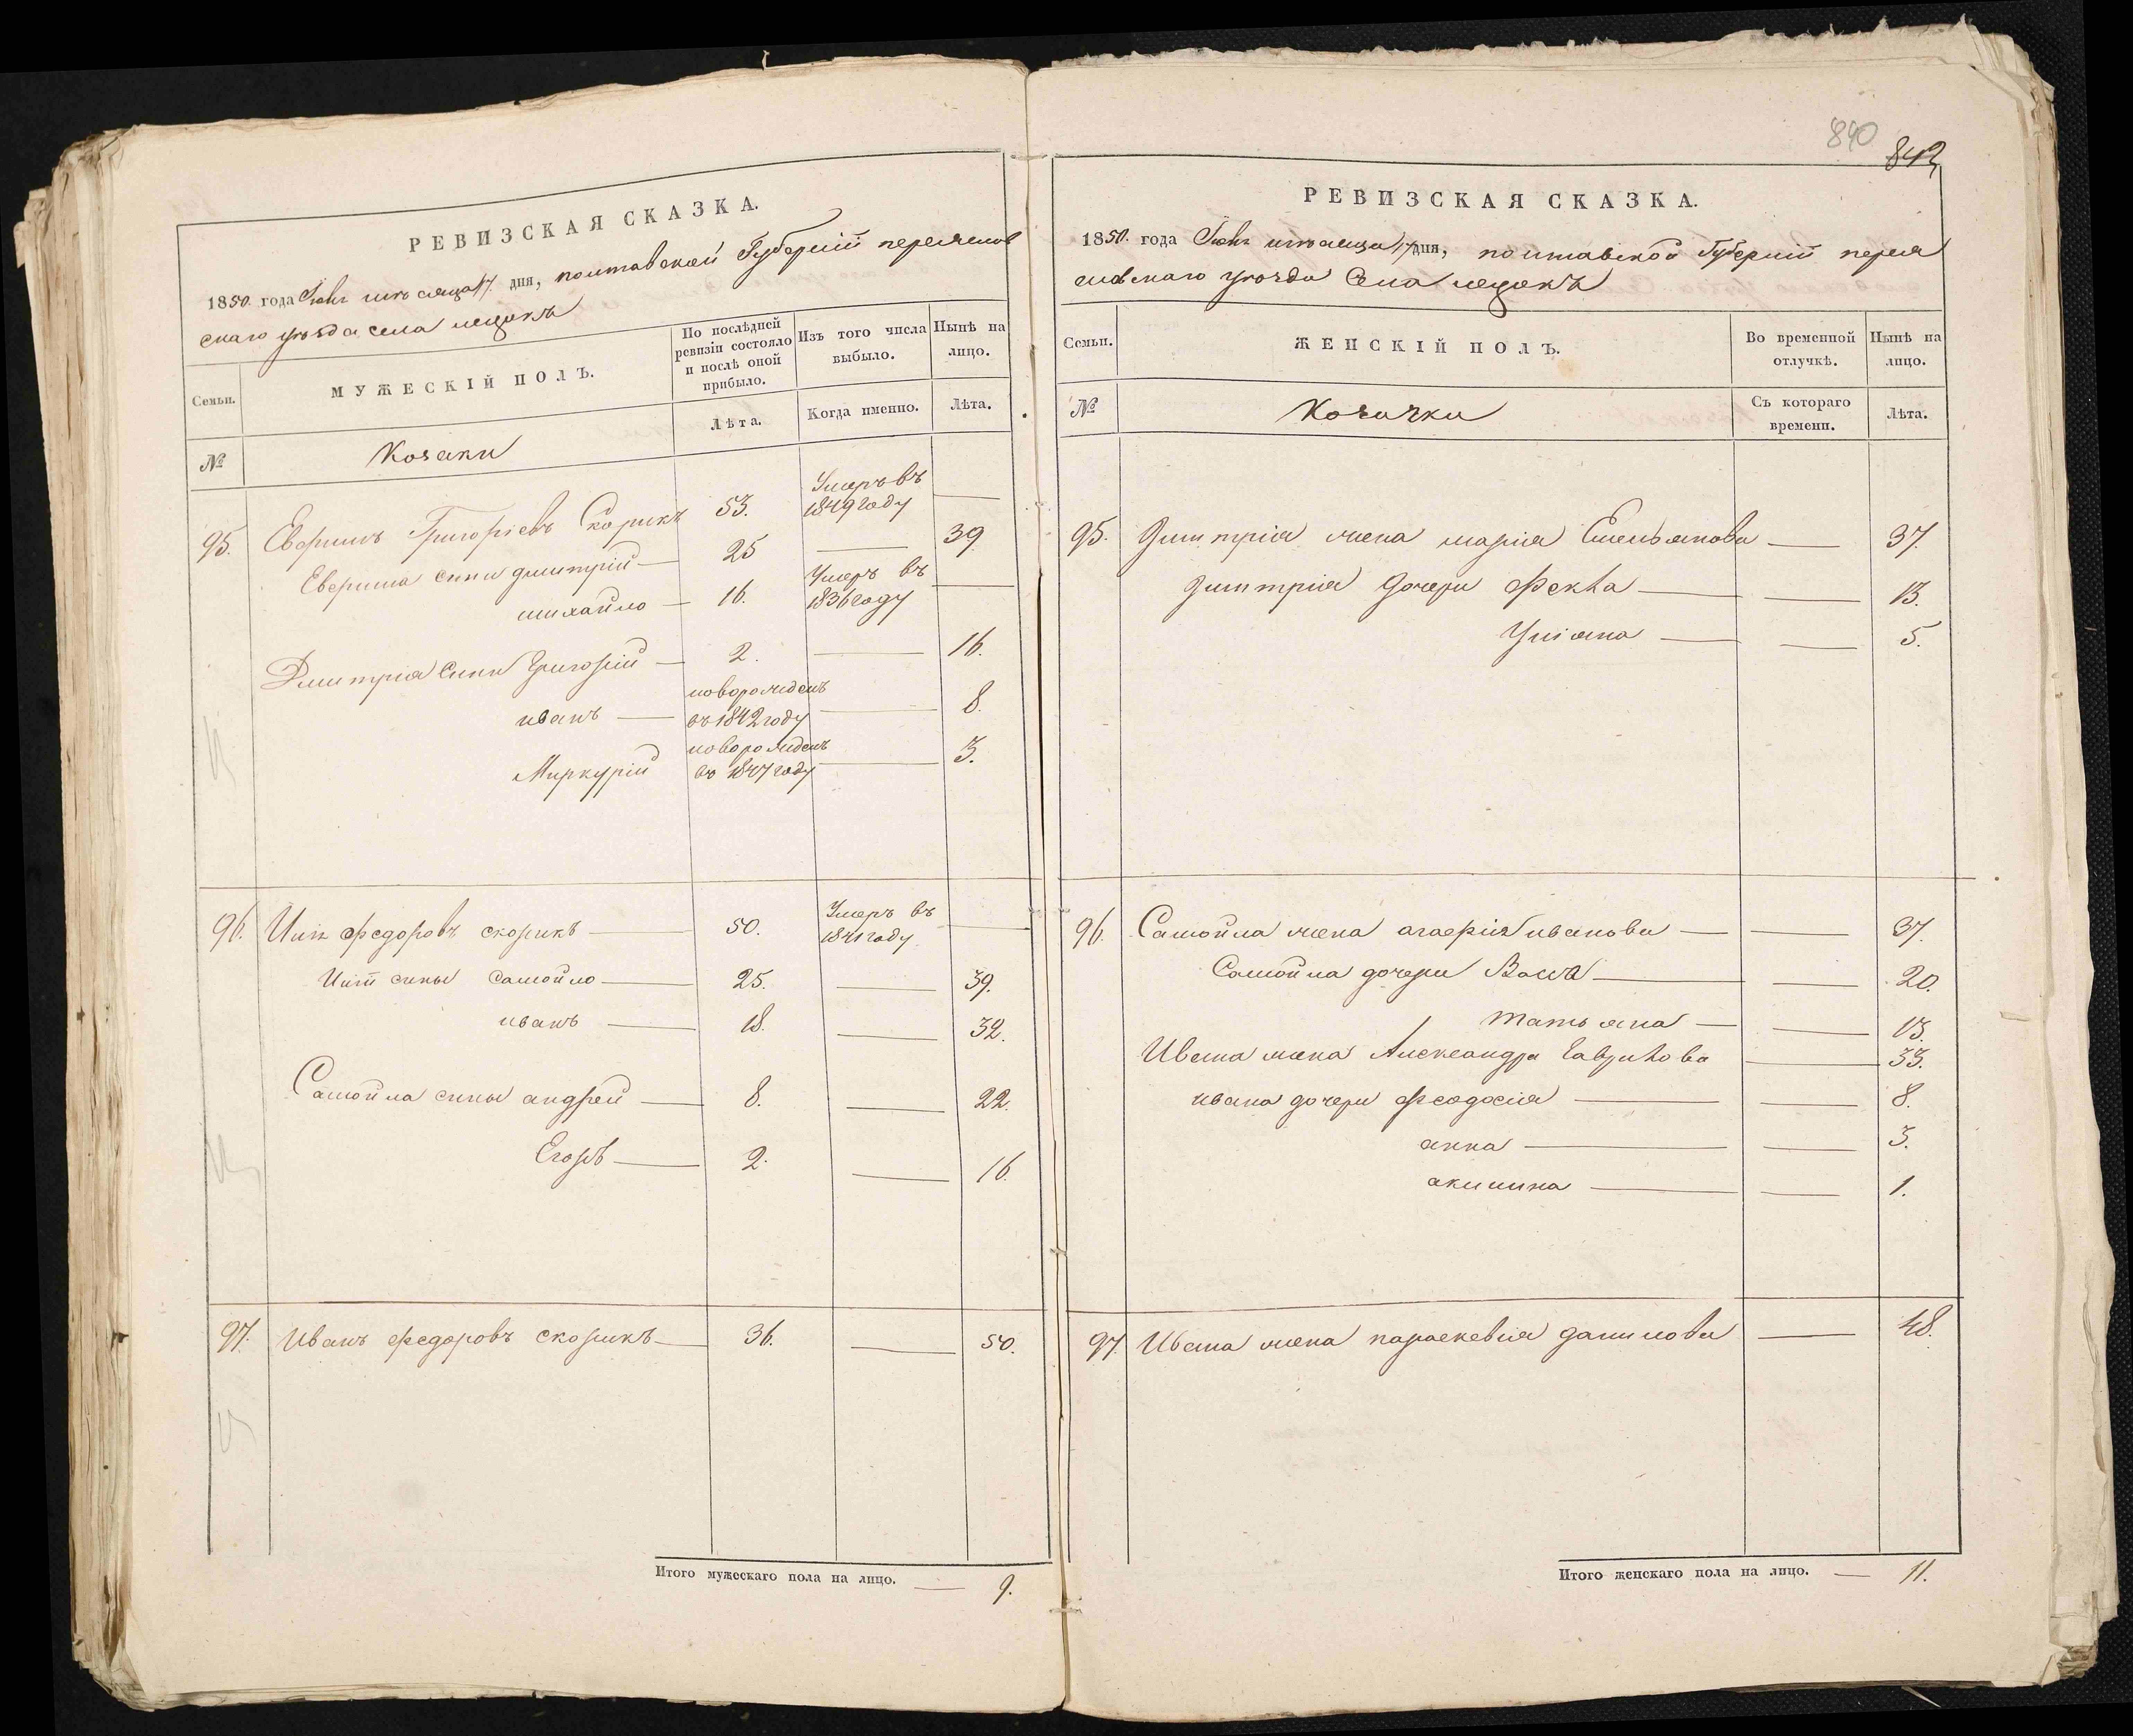 РЕВИЗСКАЯ СКАЗКА.
1850. года Июня мѣсяца 17 дня, полтавской Губерніи переяслов
скаго уѣзда села лецокъ
Семьи.
МУЖЕСКІЙ ПОЛЪ.
По послѣдней ревизіи состояло и послѣ оной прибыло.
Изъ того числа выбыло.
Нынѣ на лицо.
Лѣта.
Когда именно.
Лѣта.
№
Козаки
95. Григоріевъ Скорикъ 53. Умеръ въ 1849 году —
сыни дмитрій — 25 — 39.
михайло — 16. Умеръ въ 1836 году —
Дмитрія сыни Григорій — 2. — 16.
иванъ — новорожденъ въ 1842 году — 8.
Меркурій новорожденъ въ 1847 году — 3.
96. федоровъ скорикъ — 50. Умеръ въ 1841 году. —
сыны самойло — 25. — 39.
иванъ — 18. — 32.
Самойла сыны андрей — 8. — 22.
Егоръ — 2. — 16.
97. Иванъ федоровъ скорикъ — 36. — 50.
Итого мужескаго пола на лицо. — 9.
840
842
РЕВИЗСКАЯ СКАЗКА.
1850. года Июня мѣсяца 17 дня, полтавской Губерніи перея
словскаго уѣзда Села лецокъ
Семьи.
ЖЕНСКІЙ ПОЛЪ.
Во временной отлучкѣ.
Нынѣ на лицо.
№
Козачки
Съ котораго времени.
Лѣта.
95. Дмитрія жена марія Емельянова — 37.
Дмитрія дочери Фекла — — 13.
Уліяна — — 5.
96. Самойла жена агафія иванова — — 37.
Самойла дочери Васса — — 20.
татьяна — — 13.
Ивана жена Александра Гаврилова — 33.
ивана дочери феодосія — — 8.
анна — — 3.
акилина — — 1.
97. Ивана жена параскевія данилова — 48.
Итого женскаго пола на лицо. — 11.